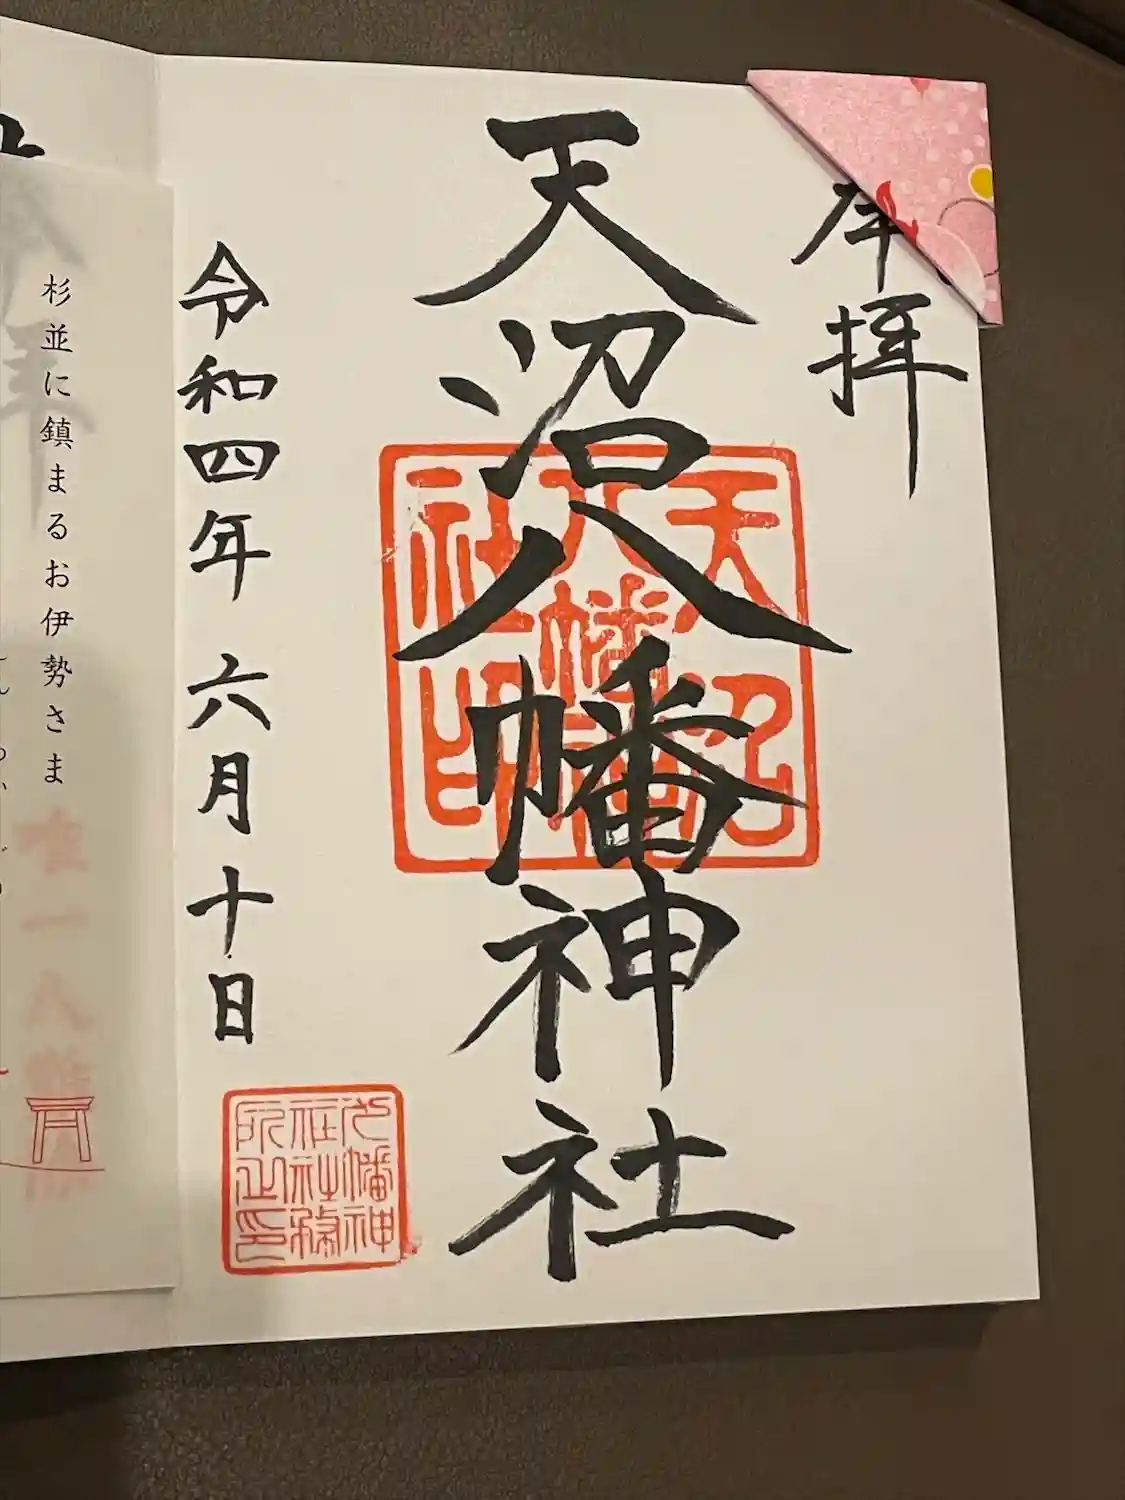 奉拝
天沼八幡神社
天沼八幡神社印
令和四年 六月十日
八幡神社社務所之印
杉並に鎮まるお伊勢さま